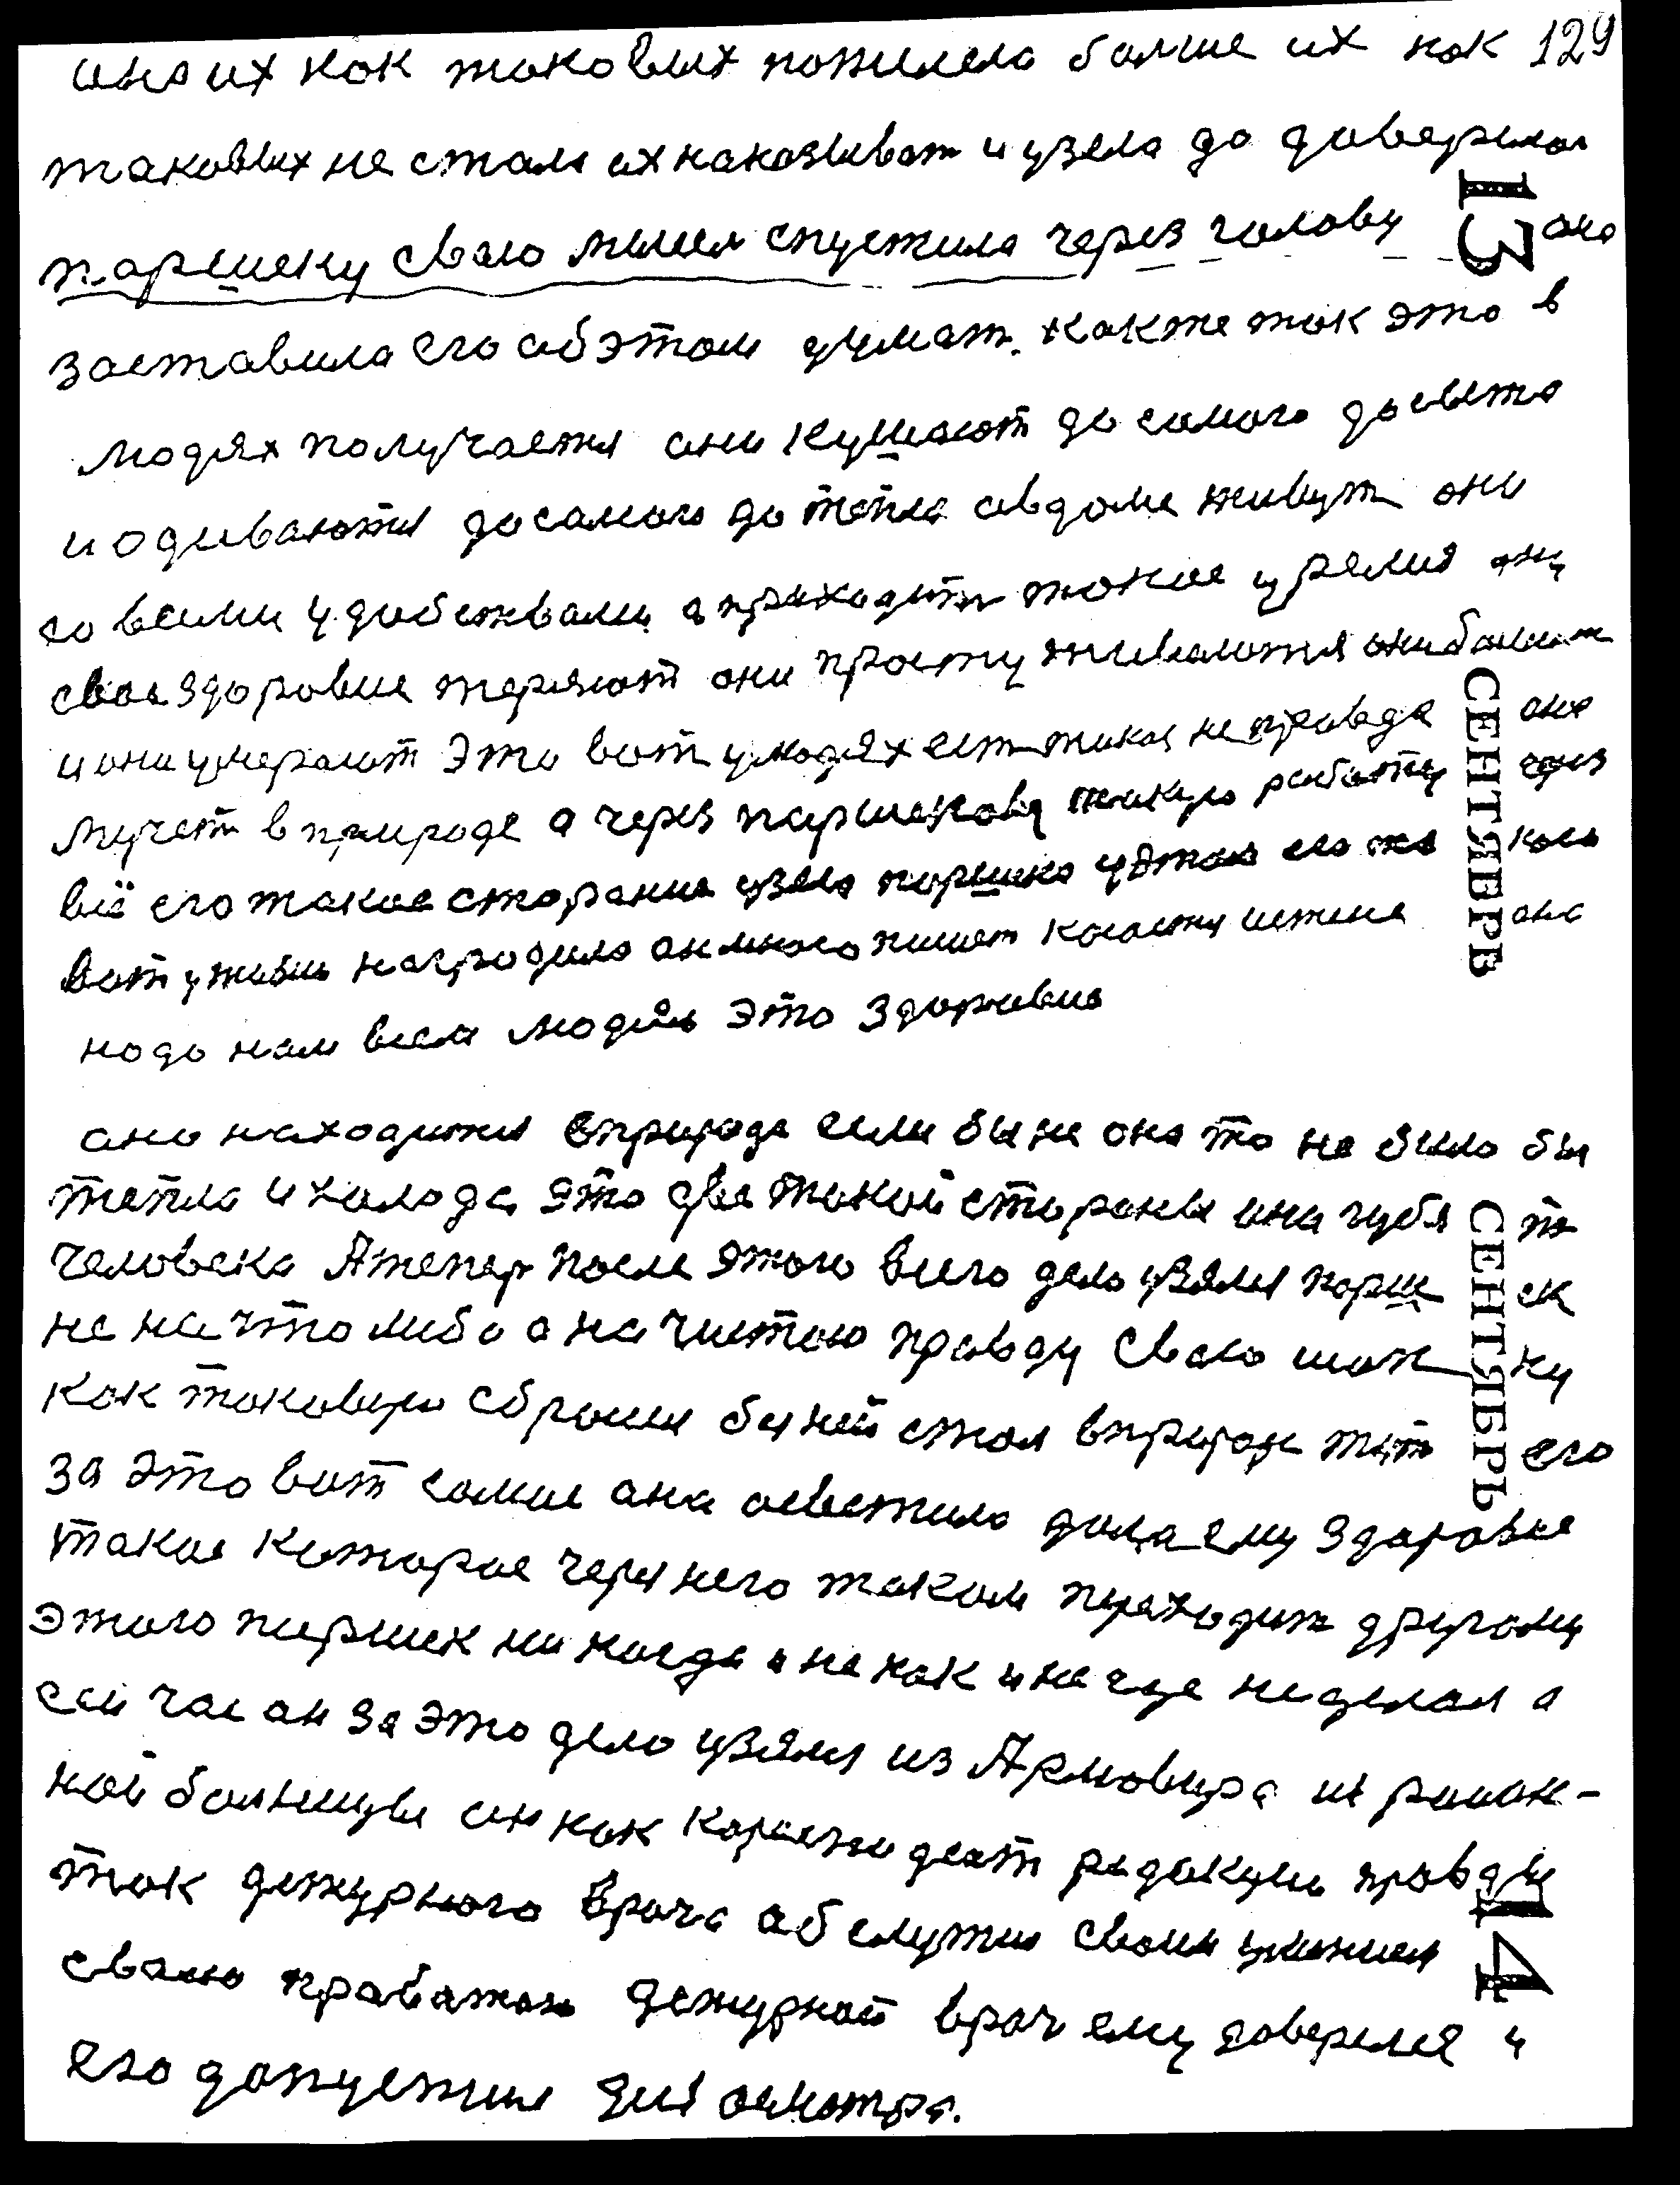 ано их как таковых пожилела болше их как 129
таковых не стала их наказыват и узела да даверила
паршеку сваю мысел спустила через галаву 13 ана
заставила его аб этом думат. как же так это в
людях получается они кушают до самого досыта
и одеваются до самого до тепла а в доме живут они
со всеми удобствами а приходится такое уремия они
свое здоровие теряют они простуживаются они болеют
и они умерают Это вот у людях ест такая не правда ана
мучет в природе а через паршекову такую работу через
всё его такое старание узела паршека
вот у жизнь наградила он много пишет ана
надо нам всем людям это здоровие
СЕНТЯБРЬ
ано находится в природе если бы не она то не было бы
тепла и холода, это две такой стораны они губят
человека А тепер после этого всего дела узялся паршек
не на что либо а на чистою правду сваю шапку
как таковую сбросил босый стал в природе тут его
за это вот самое ана осветила дала ему здаровие
такое которое через него таком переходит другому
СЕНТЯБРЬ
этого паршек ни когда и не как и не где не делал а
сей час он за это дело узялся из Армовира из раион-
ной болницы он как кореспондеят редакцыи правды
так дежурного врача абслужил своим умением
14
сваею работаю дежурной врач ему доверился и
его допустил для осмотра.